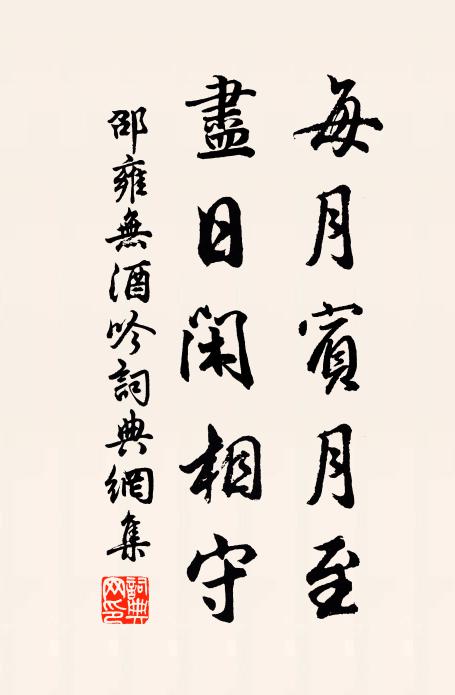 每月賓月至
盡日閑相守
邵雍無酒吟詞典網集
詞典網印